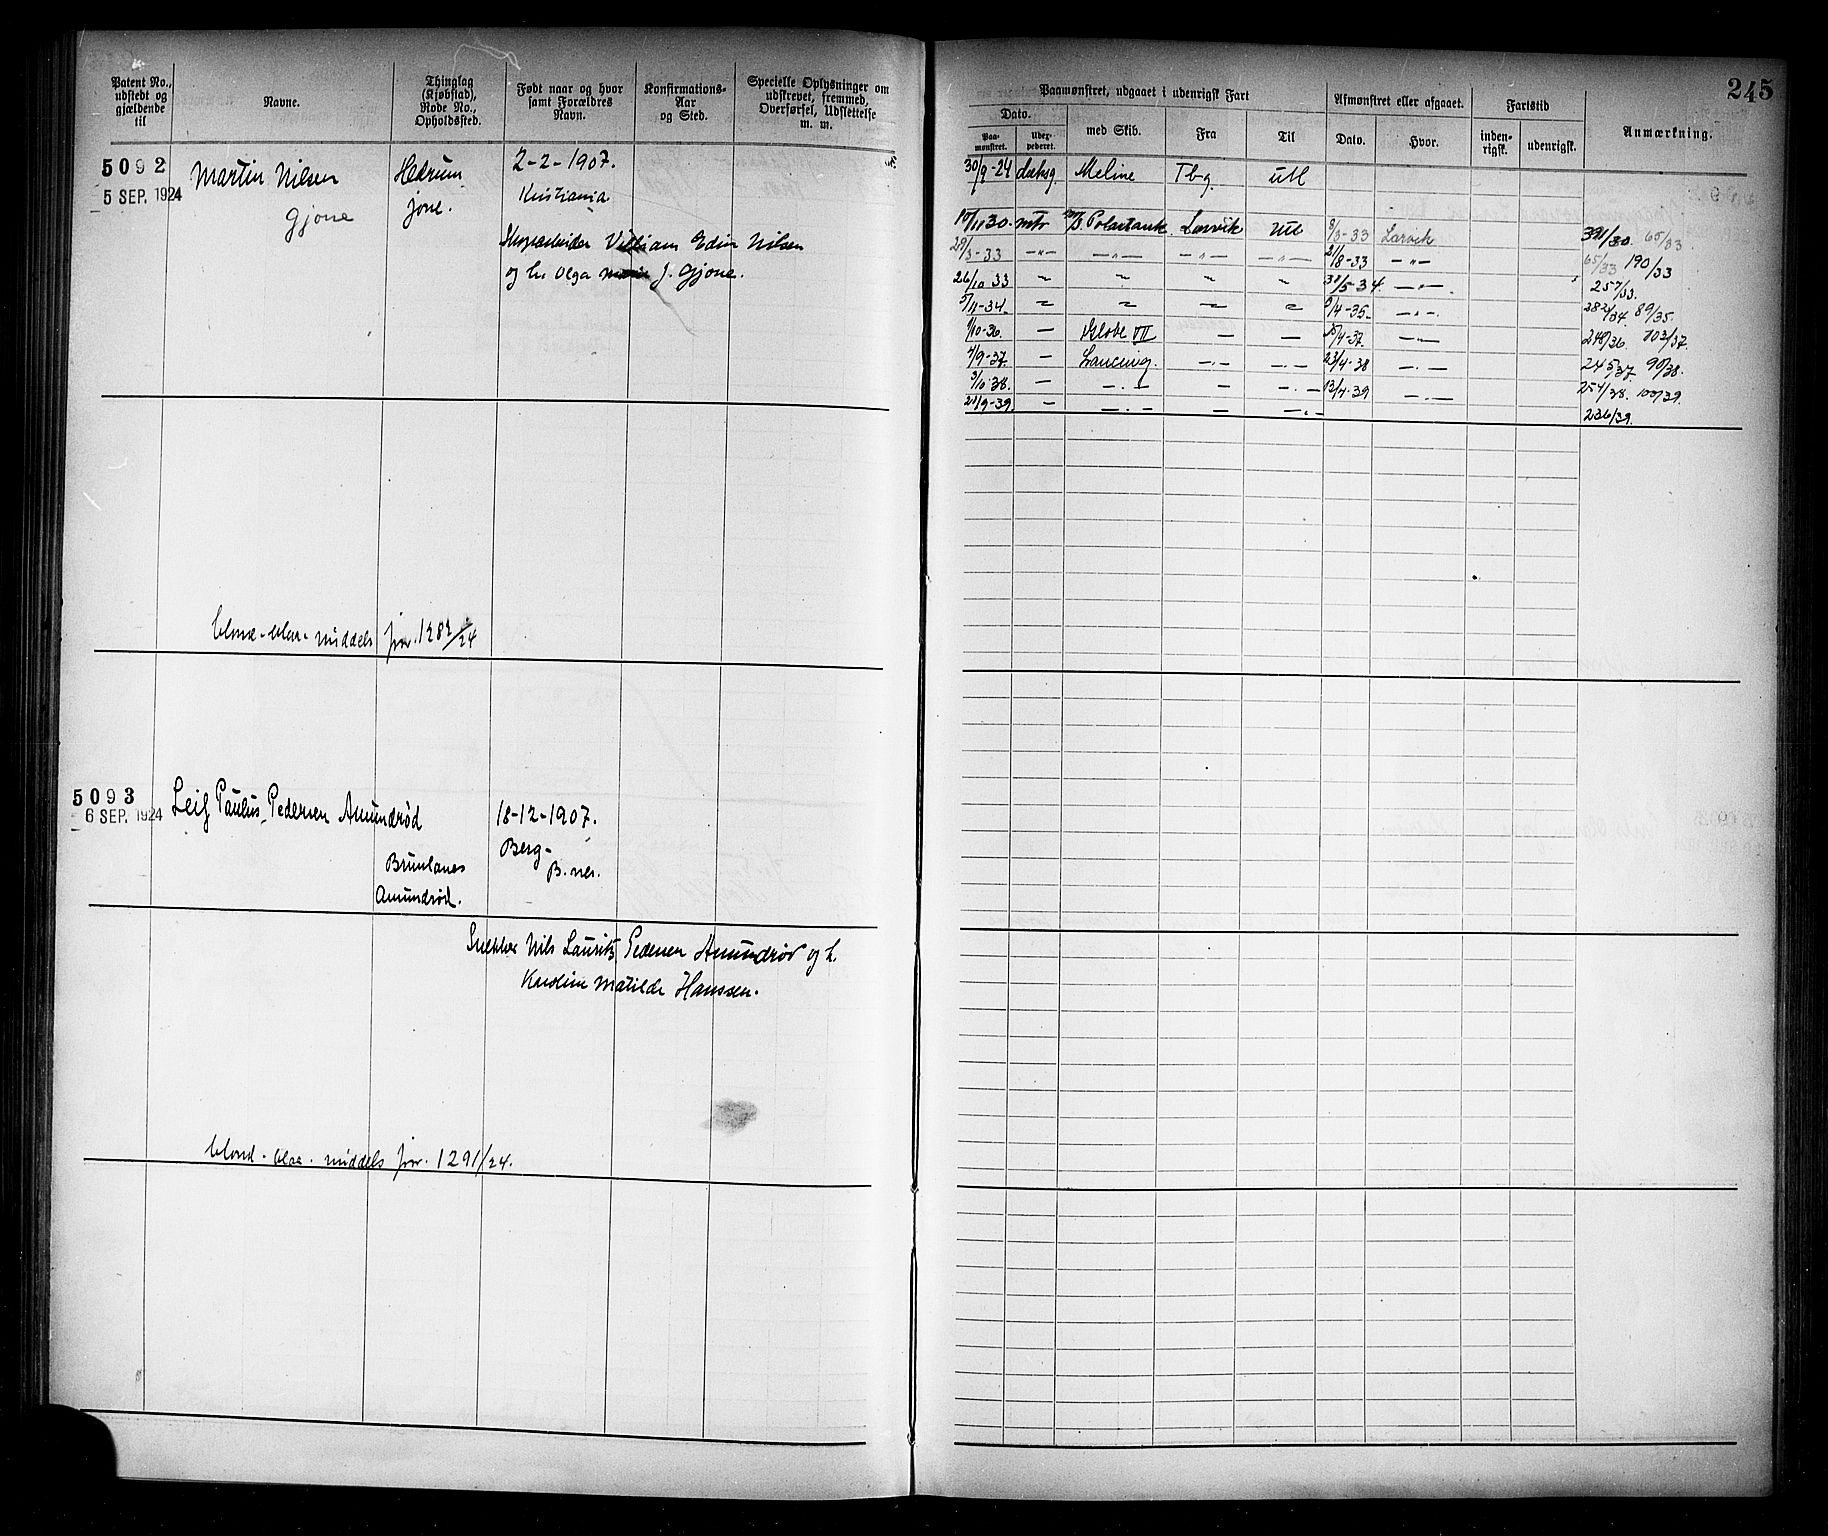 Patent No., udstedt og gjældende til
Navne.
Thinglag (Kjøbstad), Rode No., Opholdssted.
Født naar og hvor samt Forældres Navn.
Konfirmations-Aar og Sted.
Specielle Oplysninger om udskrevet, fremmed, Overførsel, Udslettelse m. m.
5092
5 SEP. 1924
Martin Nilsen
Gjone
Hedrum
Jone.
2-2-1907.
Kristiania
Villiam Edin Nilsen
og h. Olga J. Gjone.
blond - blaa - middels jnr. 1282/24
5093
6 SEP. 1924
Leif Paulus Pedersen Amundrød
Brunlanes
Amundrød.
18-12-1907.
Berg -
B. nes.
Snekker Nils Lauritz Pedersen Amundrød og h.
Karoline Matilde Hanssen.
blond - blaa - middels jnr. 1291/24.
245
Paamønstret, udgaaet i udenrigsk Fart
Afmønstret eller afgaaet.
Fartstid
Anmærkning.
Dato.
med Skib.
Fra
Til
Dato.
Hvor.
inden-rigsk.
udenrigsk.
Paa-mønstret.
30/9-24 dæksg. Meline Tbg utl
15/11 30. mtr M/S Polartank Larvik Utl 8/3-33 Larvik 391/30. 65/33.
29/3-33 -"- -"- -"- -"- 21/8-33 -"- 65/33 190/33
26/10 33 " " " " 31/5-34. -"- 257/33.
5/11-34. " " " " 9/4-35. -"- 282/34. 89/35.
1/10-36. - Globe VII - - 25/4-37. -"- 248/36 103/37.
4/9-37. - Lancing. -"- -"- 23/4-38 -"- 245/37 90/38.
3/10-38. - -"- - -"- 13/4-39 -"- 254/38. 100/39.
21/9-39. - -"- - -"- 236/39.